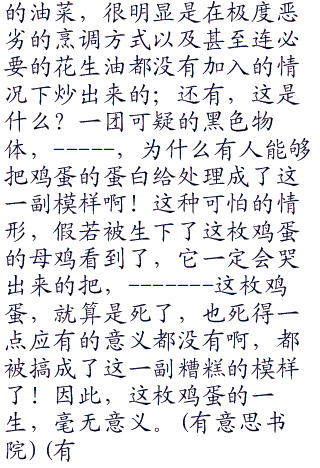 的油菜，很明显是在极度恶
劣的烹调方式以及甚至连必
要的花生油都没有加入的情
况下炒出来的；还有，这是
什么？一团可疑的黑色物
体，-----，为什么有人能够
把鸡蛋的蛋白给处理成了这
一副模样啊！这种可怕的情
形，假若被生下了这枚鸡蛋
的母鸡看到了，它一定会哭
出来的把，-------这枚鸡
蛋，就算是死了，也死得一
点应有的意义都没有啊，都
被搞成了这一副糟糕的模样
了！因此，这枚鸡蛋的一
生，毫无意义。 (有意思书
院) (有